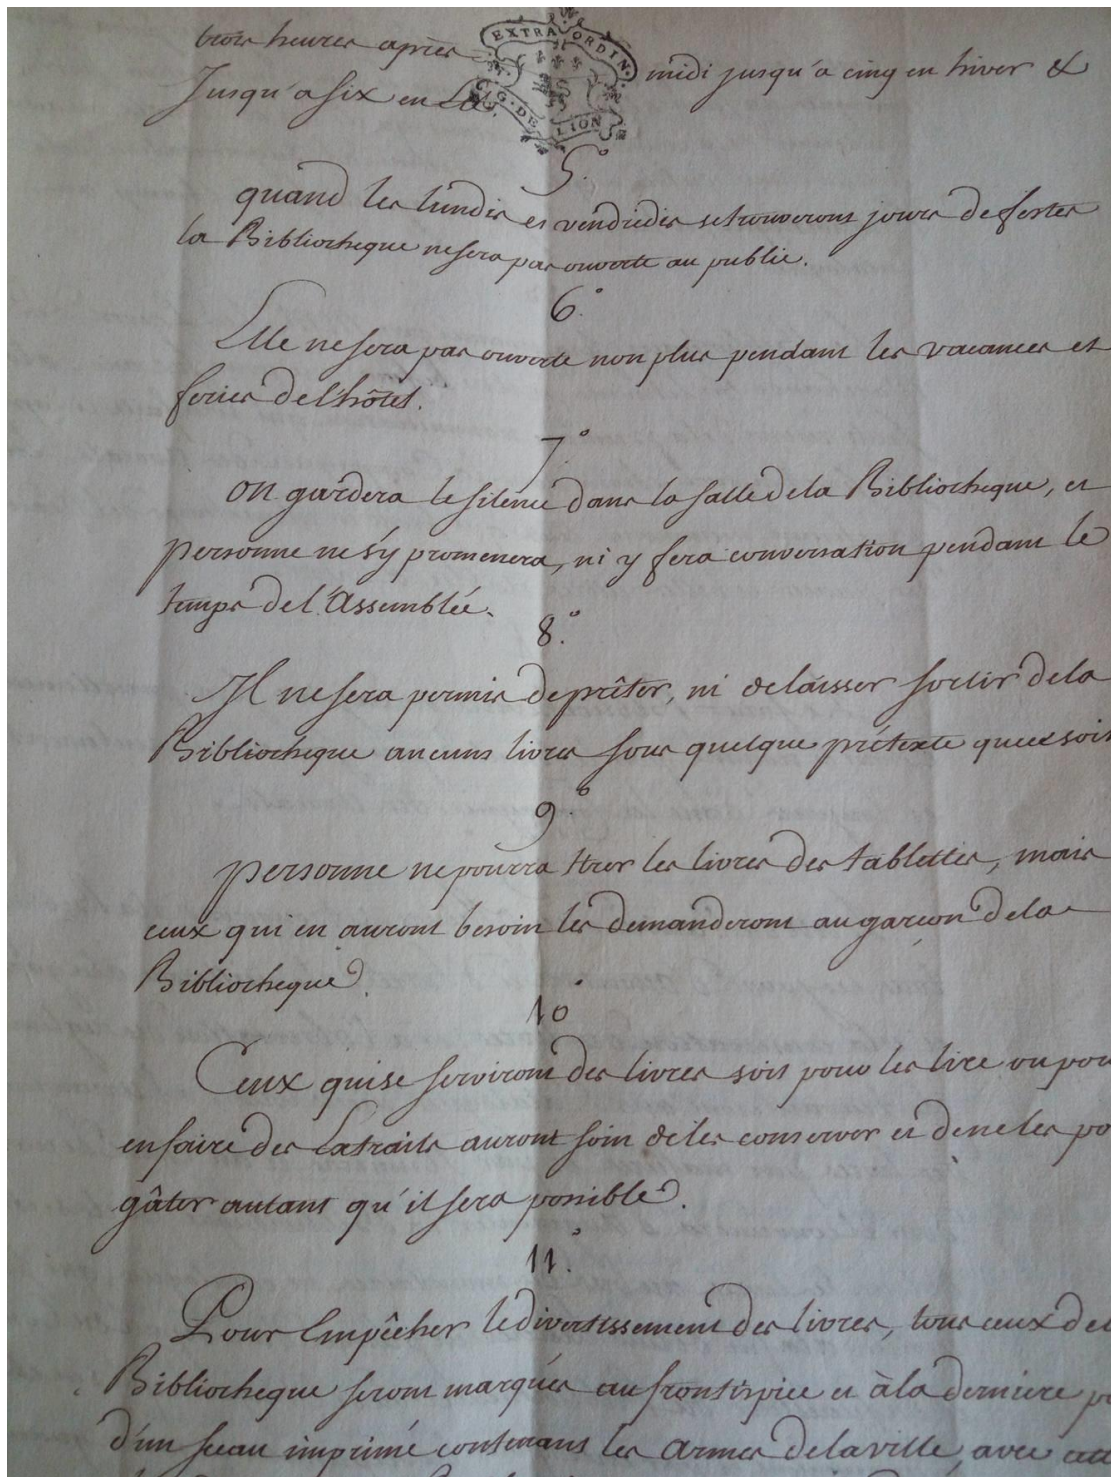 trois heures après midi jusqu'a cinq en hiver &
EXTRAORDIN.
Jusqu'a six en
G. DE LION
5.°
quand les lundis et vendredis se trouveront jours de festes
la Bibliotheque ne sera pas ouverte au public.
6.°
Elle ne sera pas ouverte non plus pendant les vacances et
feries de l'hôtel.
7.°
on gardera le silence dans la salle de la Bibliotheque, et
personne ne s'y promenera, ni y fera conversation pendant le
temps de l'Assemblée.
8.°
Il ne sera permis de prêter, ni de laisser sortir de la
Bibliotheque aucuns livres sous quelque prétexte que ce soit
9.°
personne ne pourra tirer les livres des tablettes, mais
ceux qui en auront besoin les demanderont au garcon de la
Bibliotheque.
10°
Ceux qui se serviront des livres soit pour les lire ou pou
en faire des Extraits auront soin de les conserver et de ne les po
gâter autant qu'il sera possible.
11.°
Pour Empêcher le divertissement des livres, tous ceux de
Bibliotheque seront marqués au frontispice et à la derniere
d'un sceau imprimé contenant les armes de la ville, avec